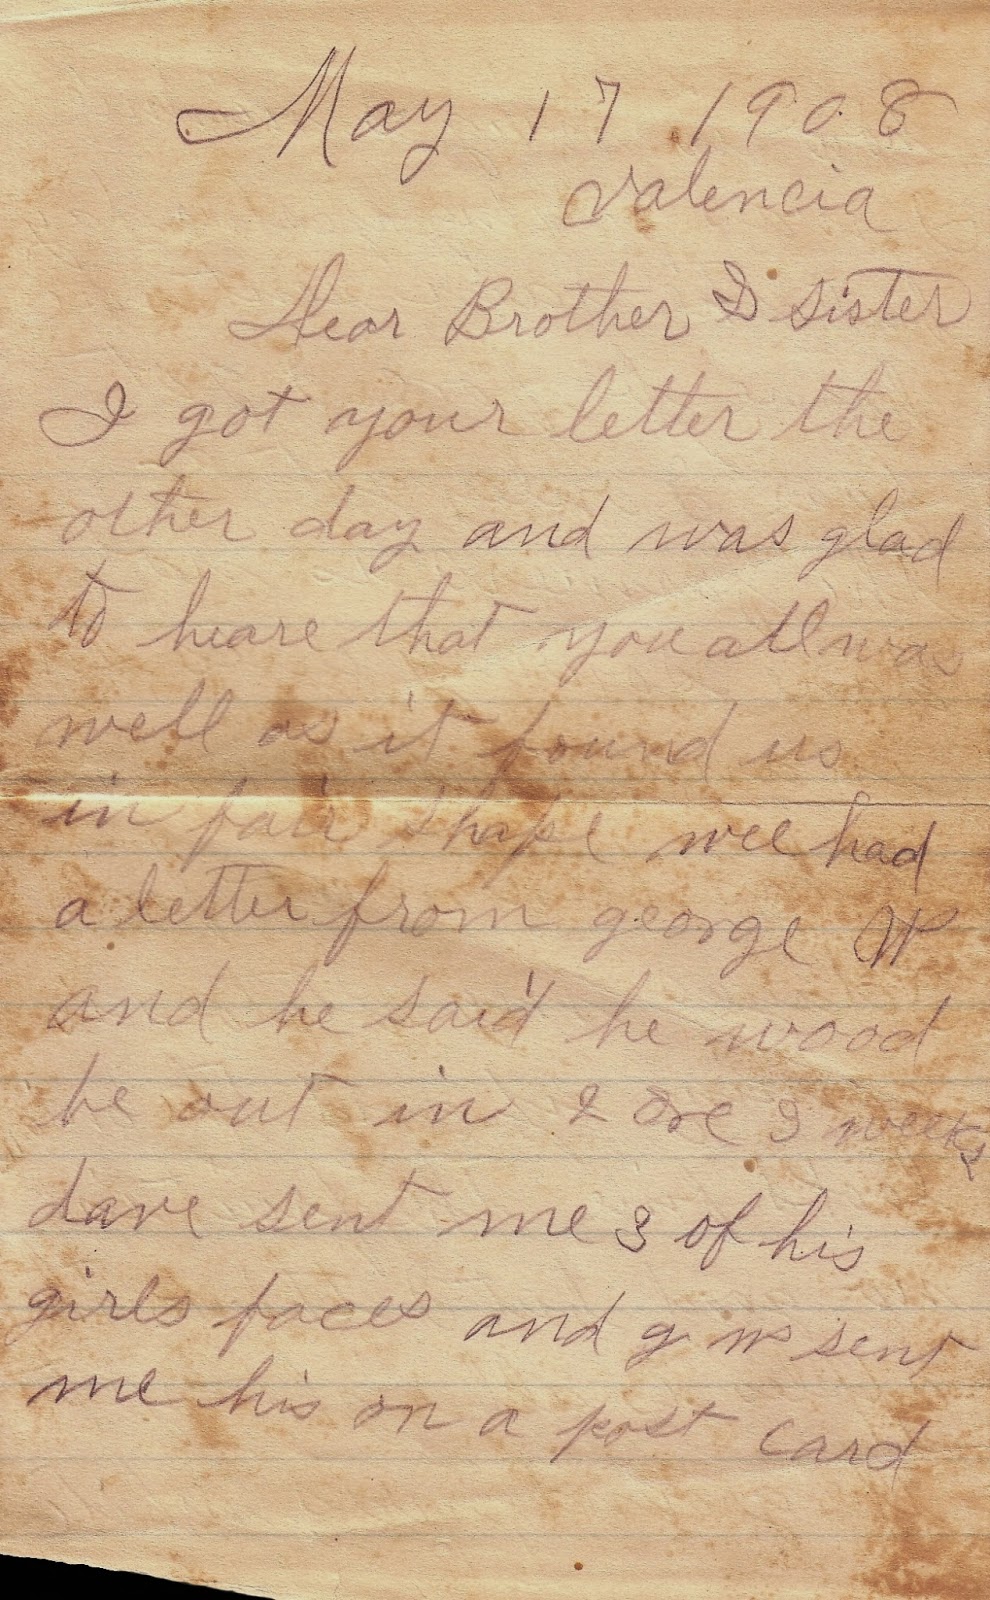 May 17 1908
Valencia
Dear Brother & sister
I got your letter the
other day and was glad
to heare that you all was
well as it found us
in fair shape wee had
a letter from george W
and he said he wood
be out in 2 ore 3 weeks
dave sent me 3 of his
girls faces and g w sent
me his on a post card